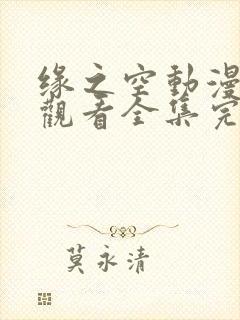 緣之空動漫
觀看全集完
莫永清